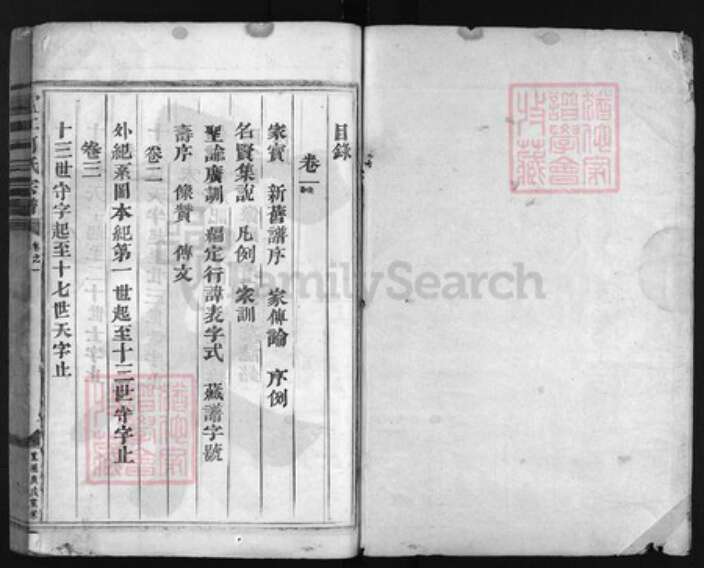 目錄
卷一
家寶 新舊譜序 家傳論 序例
名賢集說 凡例 家訓
聖諭廣訓 編定行諱表字式 藏譜字號
壽序 像贊 傳文
卷二
外紀系圖本紀第一世起至十三世守字止
卷三
十三世守字起至十七世天字止
FamilySearch